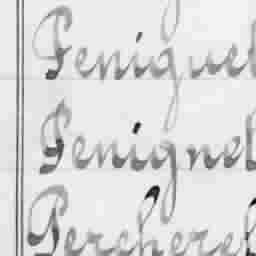 Feniguel
Fenignel
Percherel